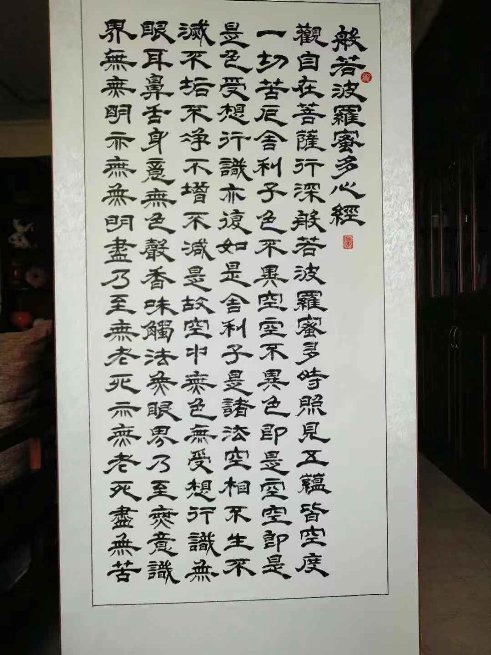 般若波羅蜜多心經
觀自在菩薩行深般若波羅蜜多時照見五蘊皆空度
一切苦厄舍利子色不異空空不異色即是空空即是
是色受想行識亦復如是舍利子是諸法空相不生不
滅不垢不净不增不減是故空中無色無受想行識無
眼耳鼻舌身意無色聲香味觸法無眼界乃至無意識
界無無明亦無無明盡乃至無老死亦無老死盡無苦